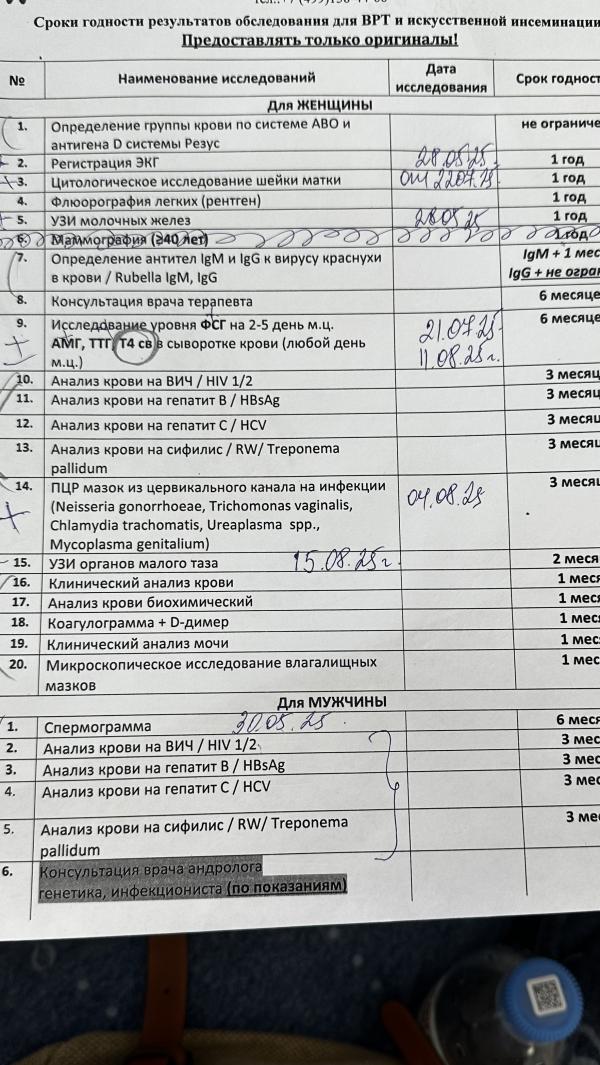 Сроки годности результатов обследования для ВРТ и искусственной инсеминации
Предоставлять только оригиналы!
№ Наименование исследований Дата исследования Срок годност
Для ЖЕНЩИНЫ
1. Определение группы крови по системе АВО и не ограниче
антигена D системы Резус
2. Регистрация ЭКГ 28.05.25. 1 год
3. Цитологическое исследование шейки матки от 22.07.25. 1 год
4. Флюорография легких (рентген) 1 год
5. УЗИ молочных желез 28.05.25 1 год
6. Маммография (≥40 лет) 1 год
7. Определение антител IgM и IgG к вирусу краснухи IgM + 1 мес
в крови / Rubella IgM, IgG IgG + не огран
8. Консультация врача терапевта 6 месяце
9. Исследование уровня ФСГ на 2-5 день м.ц. 21.07.25 6 месяце
АМГ, ТТГ, Т4 св в сыворотке крови (любой день 11.08.25г.
м.ц.)
10. Анализ крови на ВИЧ / HIV 1/2 3 месяц
11. Анализ крови на гепатит В / HBsAg 3 месяц
12. Анализ крови на гепатит С / HCV 3 месяц
13. Анализ крови на сифилис / RW/ Treponema 3 месяц
pallidum
14. ПЦР мазок из цервикального канала на инфекции 04.08.25 3 месяц
(Neisseria gonorrhoeae, Trichomonas vaginalis,
Chlamydia trachomatis, Ureaplasma spp.,
Mycoplasma genitalium)
15. УЗИ органов малого таза 15.08.25г. 2 меся
16. Клинический анализ крови 1 меся
17. Анализ крови биохимический 1 меся
18. Коагулограмма + D-димер 1 меся
19. Клинический анализ мочи 1 мес
20. Микроскопическое исследование влагалищных 1 мес
мазков
Для МУЖЧИНЫ
1. Спермограмма 30.05.25. 6 меся
2. Анализ крови на ВИЧ / HIV 1/2 3 мес
3. Анализ крови на гепатит В / HBsAg 3 мес
4. Анализ крови на гепатит С / HCV 3 мес
5. Анализ крови на сифилис / RW/ Treponema 3 мес
pallidum
6. Консультация врача андролога
генетика, инфекциониста (по показаниям)